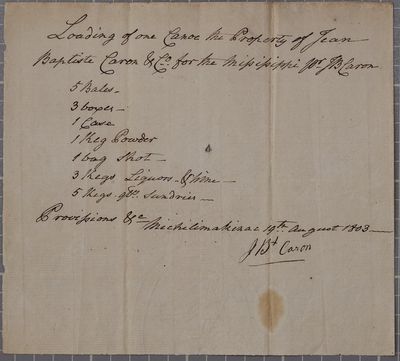 Loading of one Canoe the Property of Jean
Baptiste Caron & Co. for the Misisippi pr. JB Caron
5 Bales —
3 boxes —
1 Case
1 Keg Powder
1 bag Shot —
3 Kegs Liquors & Wine —
5 Kegs Sundries —
Provissions &c Michilimakinac 19th August 1803 —
J Bt Caron